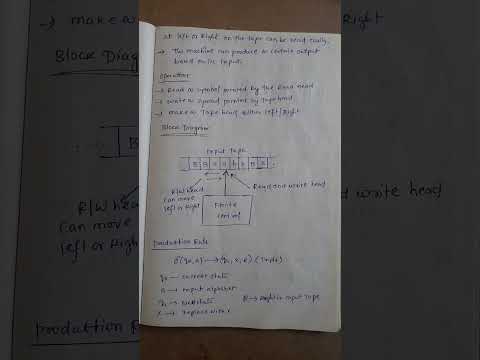 at left or Right on the tape can be read easily.
→ The machine can produce a certain output
based on its inputs.
Operation
→ Read a symbol pointed by the Read head
→ write a symbol pointed by Tapehead
→ make a Tape head within left/Right
Block Diagram
Input Tape
B B a a b b B B
R/W head
can move
left or Right
Read and write head
Finite
control
Production Rule
δ(q0, A) → (q1, X, R)
q0 → current state
A → input alphabet
q1 → Next state
X → replace with
→ make a
Right
Block Diagra
B
R/W hea
can move
left or Righ
d write head
production R